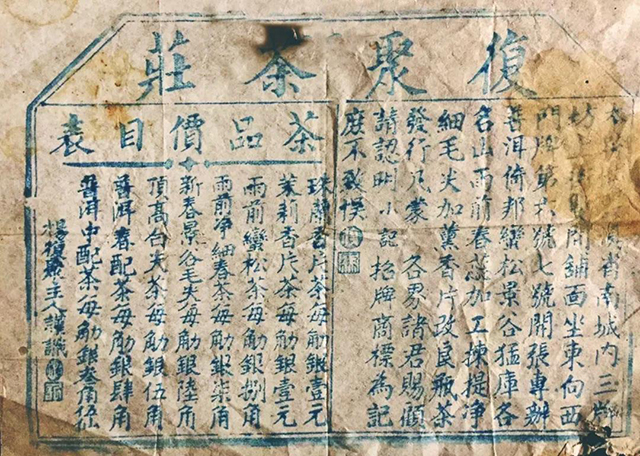 復聚茶莊
省南城內三牌
坊開舖面坐東向西
門牌第六號七號開張專辦
普洱倚邦蠻松景谷猛庫各
名山雨前春蕊加工揀提淨
細毛尖加薰香片改良瓶茶
發行凡蒙 各界諸君賜顧
請認明小記招牌商標為記
庶不致悮
茶品價目表
珠蘭香片茶每觔銀壹元
茉莉香片茶每觔銀壹元
雨前蠻松茶每觔銀捌角
雨前淨細春茶每觔銀柒角
新春景谷毛尖每觔銀陸角
頂高白尖茶每觔銀伍角
普洱春配茶每觔銀肆角
普洱中配茶每觔銀叁角伍
復聚主人謹識